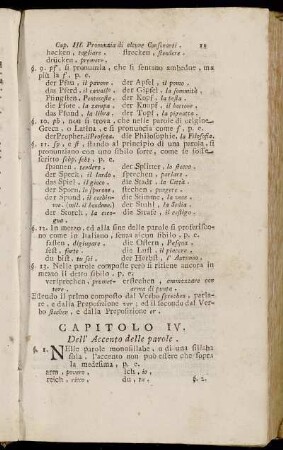 Cap. III. Pronunzia di alcune Consonanti. 11
hocken, tagliare. stechen,
drücken, premere.
§. 9. pf. si pronunzia, che si sentano ambedue, ma
più la f. p. e.
der Pfau, il pavone. der Apfel, il pomo.
das Pferd, il cavallo. der Gipfel, la sommità.
Pfingsten, Pentecoste. der Kopf, la testa.
die Pfote, la zampa. der Knopf, il bottone.
das Pfund, la libra. der Topf, la pignatta.
§. 10. ph, non si trova, che nelle parole di origine
Greca, o Latina, e si pronuncia come f. p. e.
der Prophet, il Profeta. die Philosophie, la Filosofia.
§. 11. sp, e st, stando al principio di una parola, si
pronunziano con uno sibilo forte, come se fosse
scritto schp, scht. p. e.
spannen, tendere. der Splitter, lo stecco.
der Speck, il lardo. sprechen, parlare.
das Spiel, il gioco. die Stadt, la Città.
der Sporn, lo sperone. stechen, pungere.
spinnen, filare. die Stimme, la voce.
der Stock, il bastone. der Stuhl, la Sedia.
der Storch, la cicogna. die Strafe, il castigo.
§. 12. In mezzo, ed alla fine delle parole si profferiscono
come in Italiano, senza alcun sibilo. p. e.
fasten, digiunare. die Ostern, Pasqua.
fest, forte. die Lust, il piacere.
du bist, tu sei. der Herbst, l'Autunno.
§. 13. Nelle parole composte però si ritiene ancora in
mezzo il detto sibilo. p. e.
versprechen, promettere. erstechen, ammazzare con
arma di punta.
Essendo il primo composto dal Verbo sprechen, parlare,
e dalla Preposizione ver; ed il secondo dal Verbo
stechen, e dalla Preposizione er.
CAPITOLO IV.
Dell' Accento delle parole.
§. 1. Nelle parole monosillabe, o di una sillaba
sola, l'accento non può essere che sopra
la medesima, p. e.
arm, povero. ich, io,
reich, ricco. du, tu. §. 2.